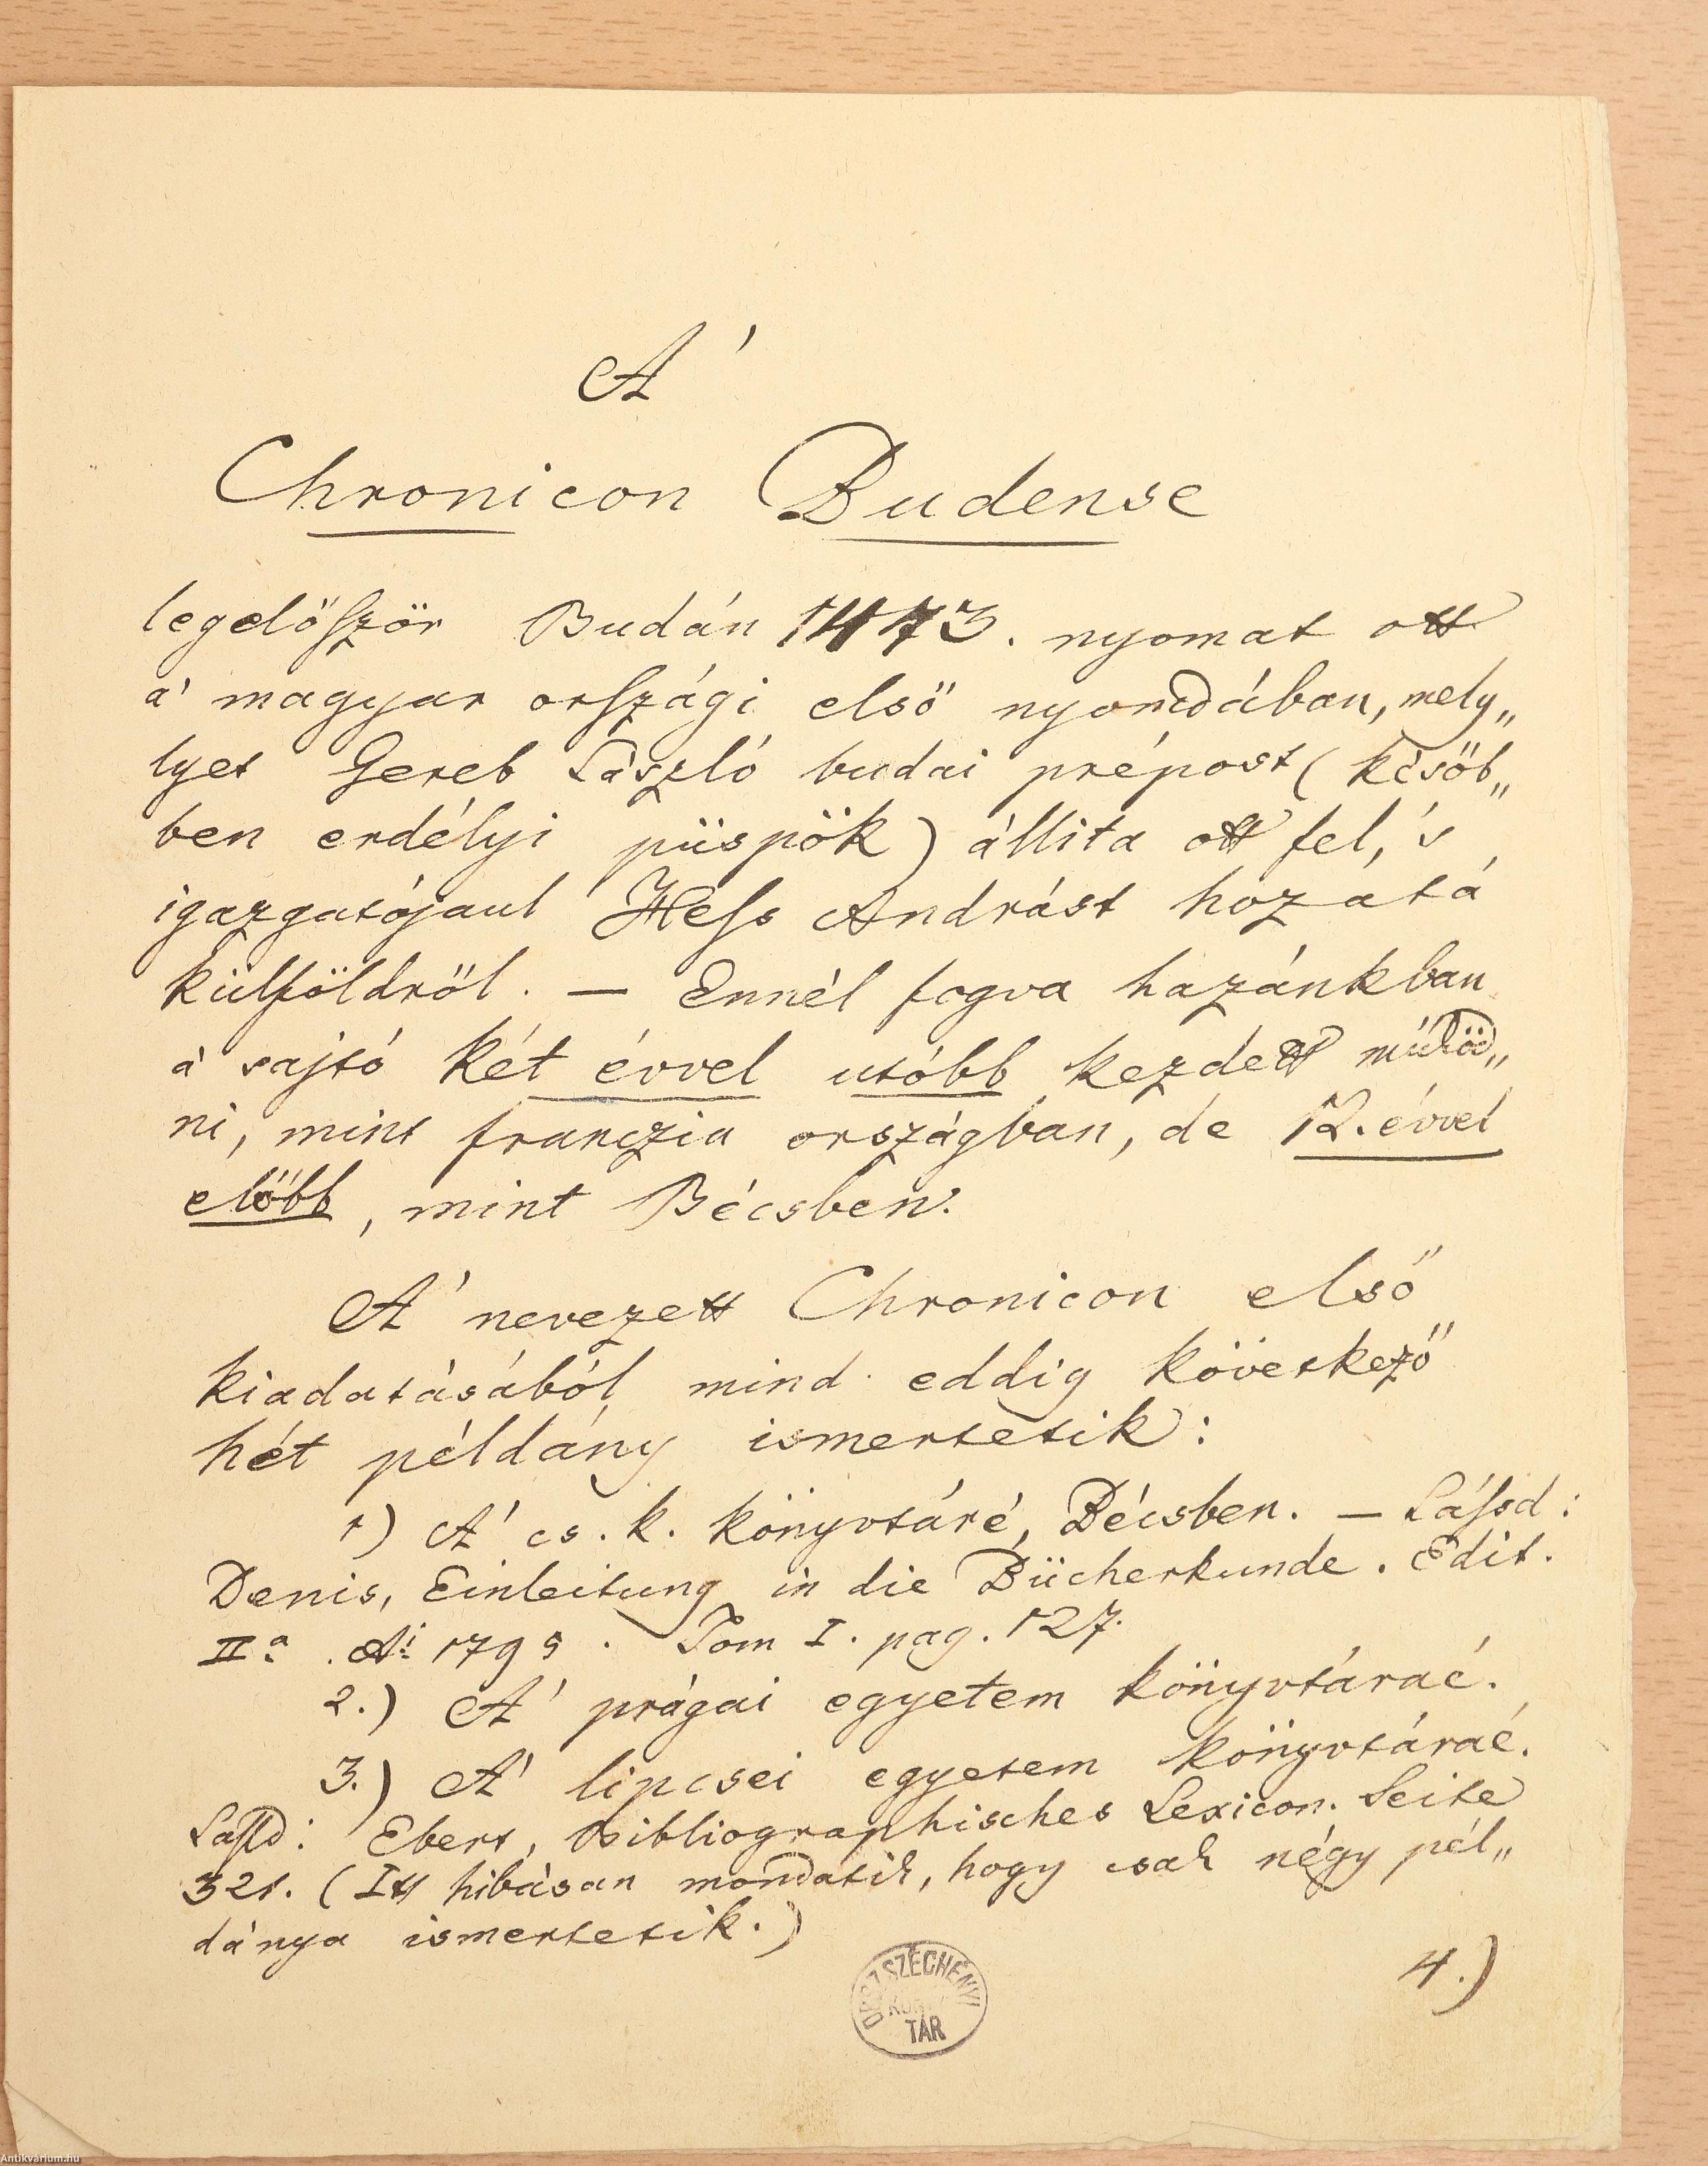 A'
Chronicon Budense
legelőſzör Budán 1473. nyomatott
a' magyar orſzági első nyomdában, mely„
lyet Gereb László budai prépost (késöb„
ben erdélyi püspök) állita ott fel, 's
igazgatójaul Heſs Andrást hozatá
külföldről. — Ennél fogva hazánkban
a' sajtó két évvel utóbb kezdett működ„
ni, mint franczia országban, de 12. évvel
előbb, mint Bécsben.
A' nevezett Chronicon első
kiadatásából mind eddig következő
hét példány ismertetik:
1) A' cs. k. könyvtáré, Bécsben. — Láſsd:
Denis, Einleitung in die Bücherkunde. Edit.
IIa. Ai 1795. Tom I. pag. 127.
2.) A' prágai egyetem könyvtáraé.
3.) A' lipcsei egyetem könyvtáraé.
Láſsd: Ebert, Bibliographisches Lexicon. Seite
321. (Itt hibásan mondatik, hogy csak négy pél„
dánya ismertetik.)
4.)
ORSZ. SZÉCHÉNYI
KÖNYV
TÁR
Antikvarium.hu